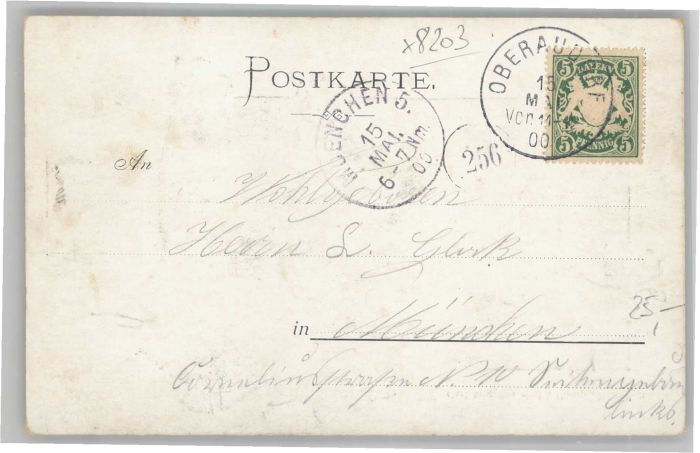 x8203
POSTKARTE.
OBERAUD
15
MAI
Vor 11-
00
BAYERN
5 5
PFENNIG
5 5
MUENCHEN 5.
15
MAI.
6-7 Nm.
00
256
An
Wohlgeboren
Herrn L. Glock
25,-
in München
Corneliusstraße N. 10
links